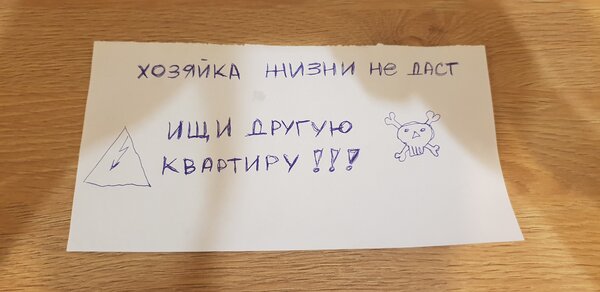 ХОЗЯЙКА ЖИЗНИ НЕ ДАСТ
ИЩИ ДРУГУЮ
КВАРТИРУ !!!